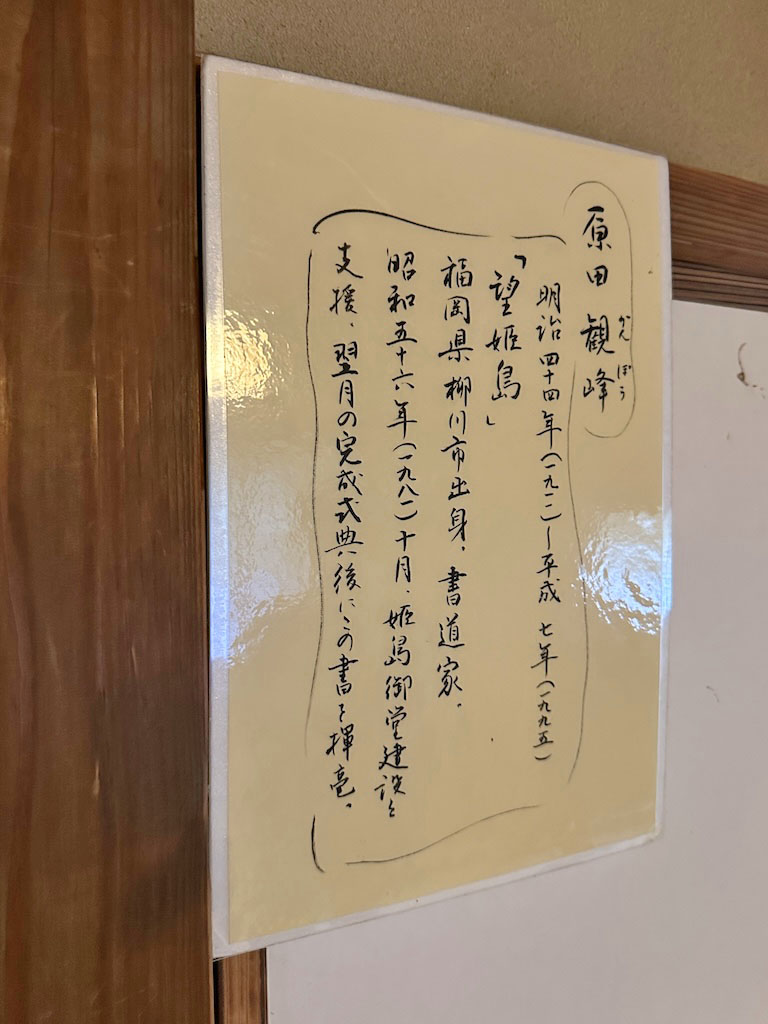 原田観峰
かんぽう
明治四十四年(一九一一)ー平成 七年(一九九五)
「望姫島」
福岡県柳川市出身、書道家。
昭和五十六年(一九八一)十月、姫島御堂建設を
支援、翌月の完成式典後にこの書を揮毫。